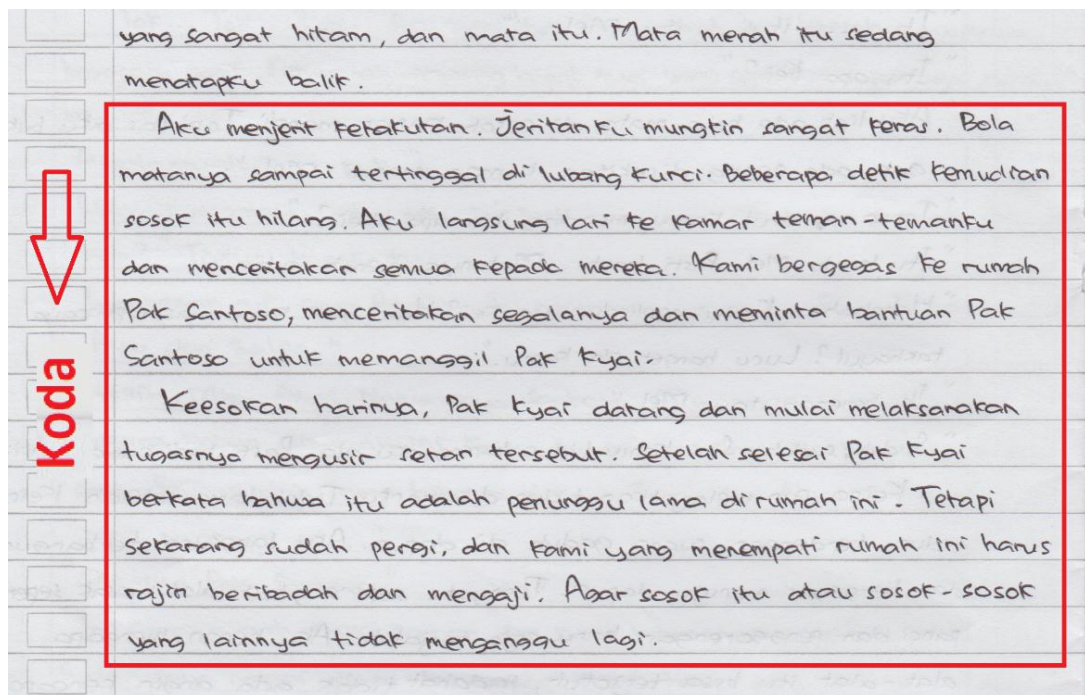 yang sangat hitam, dan mata itu. Mata merah itu sedang
menatapku balik.
Aku menjerit ketakutan. Jeritanku mungkin sangat keras. Bola
matanya sampai tertinggal di lubang kunci. Beberapa detik kemudian
sosok itu hilang. Aku langsung lari ke kamar teman-temanku
dan menceritakan semua kepada mereka. Kami bergegas ke rumah
Pak Santoso, menceritakan segalanya dan meminta bantuan Pak
Santoso untuk memanggil Pak Kyai.
Keesokan harinya, Pak Kyai datang dan mulai melaksanakan
tugasnya mengusir setan tersebut. Setelah selesai Pak Kyai
berkata bahwa itu adalah penunggu lama di rumah ini. Tetapi
sekarang sudah pergi, dan kami yang menempati rumah ini harus
rajin beribadah dan mengaji. Agar sosok itu atau sosok-sosok
yang lainnya tidak menganggu lagi.
Koda